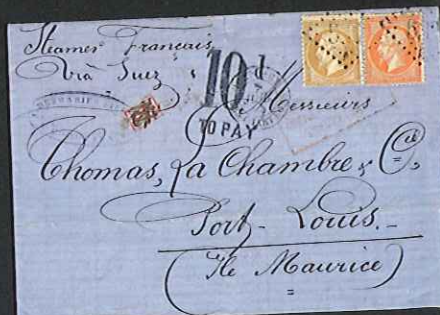 Steamer Français
Viâ Suez
10d
TO PAY
Messieurs
Thomas, La Chambre & Cie,
Port-Louis.-
(Ile Maurice)